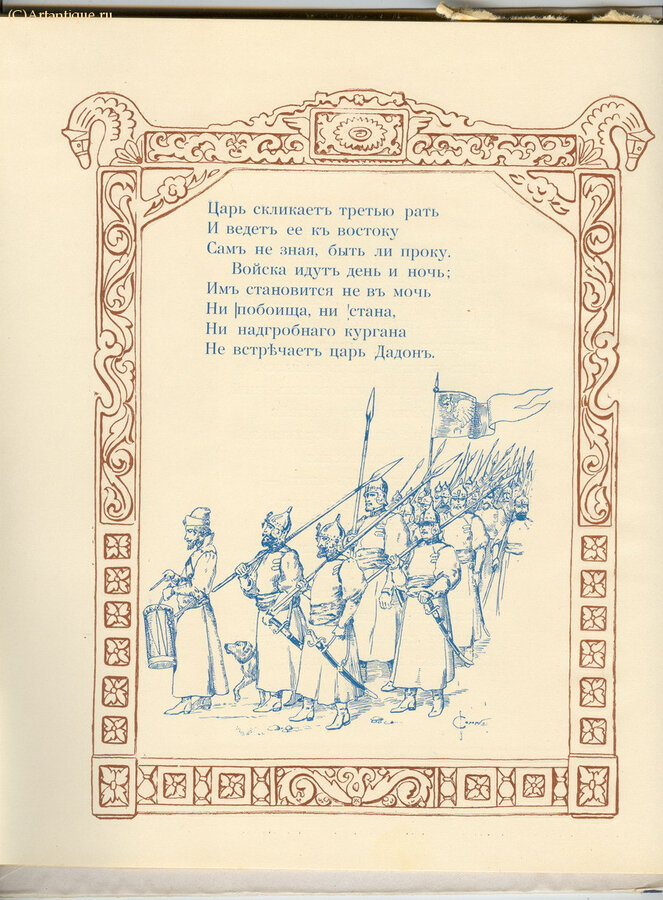 (C)Artantique.ru
Царь скликаетъ третью рать
И ведетъ ее къ востоку
Самъ не зная, быть ли проку.
Войска идутъ день и ночь;
Имъ становится не въ мочь
Ни побоища, ни стана,
Ни надгробнаго кургана
Не встрѣчаетъ царь Дадонъ.